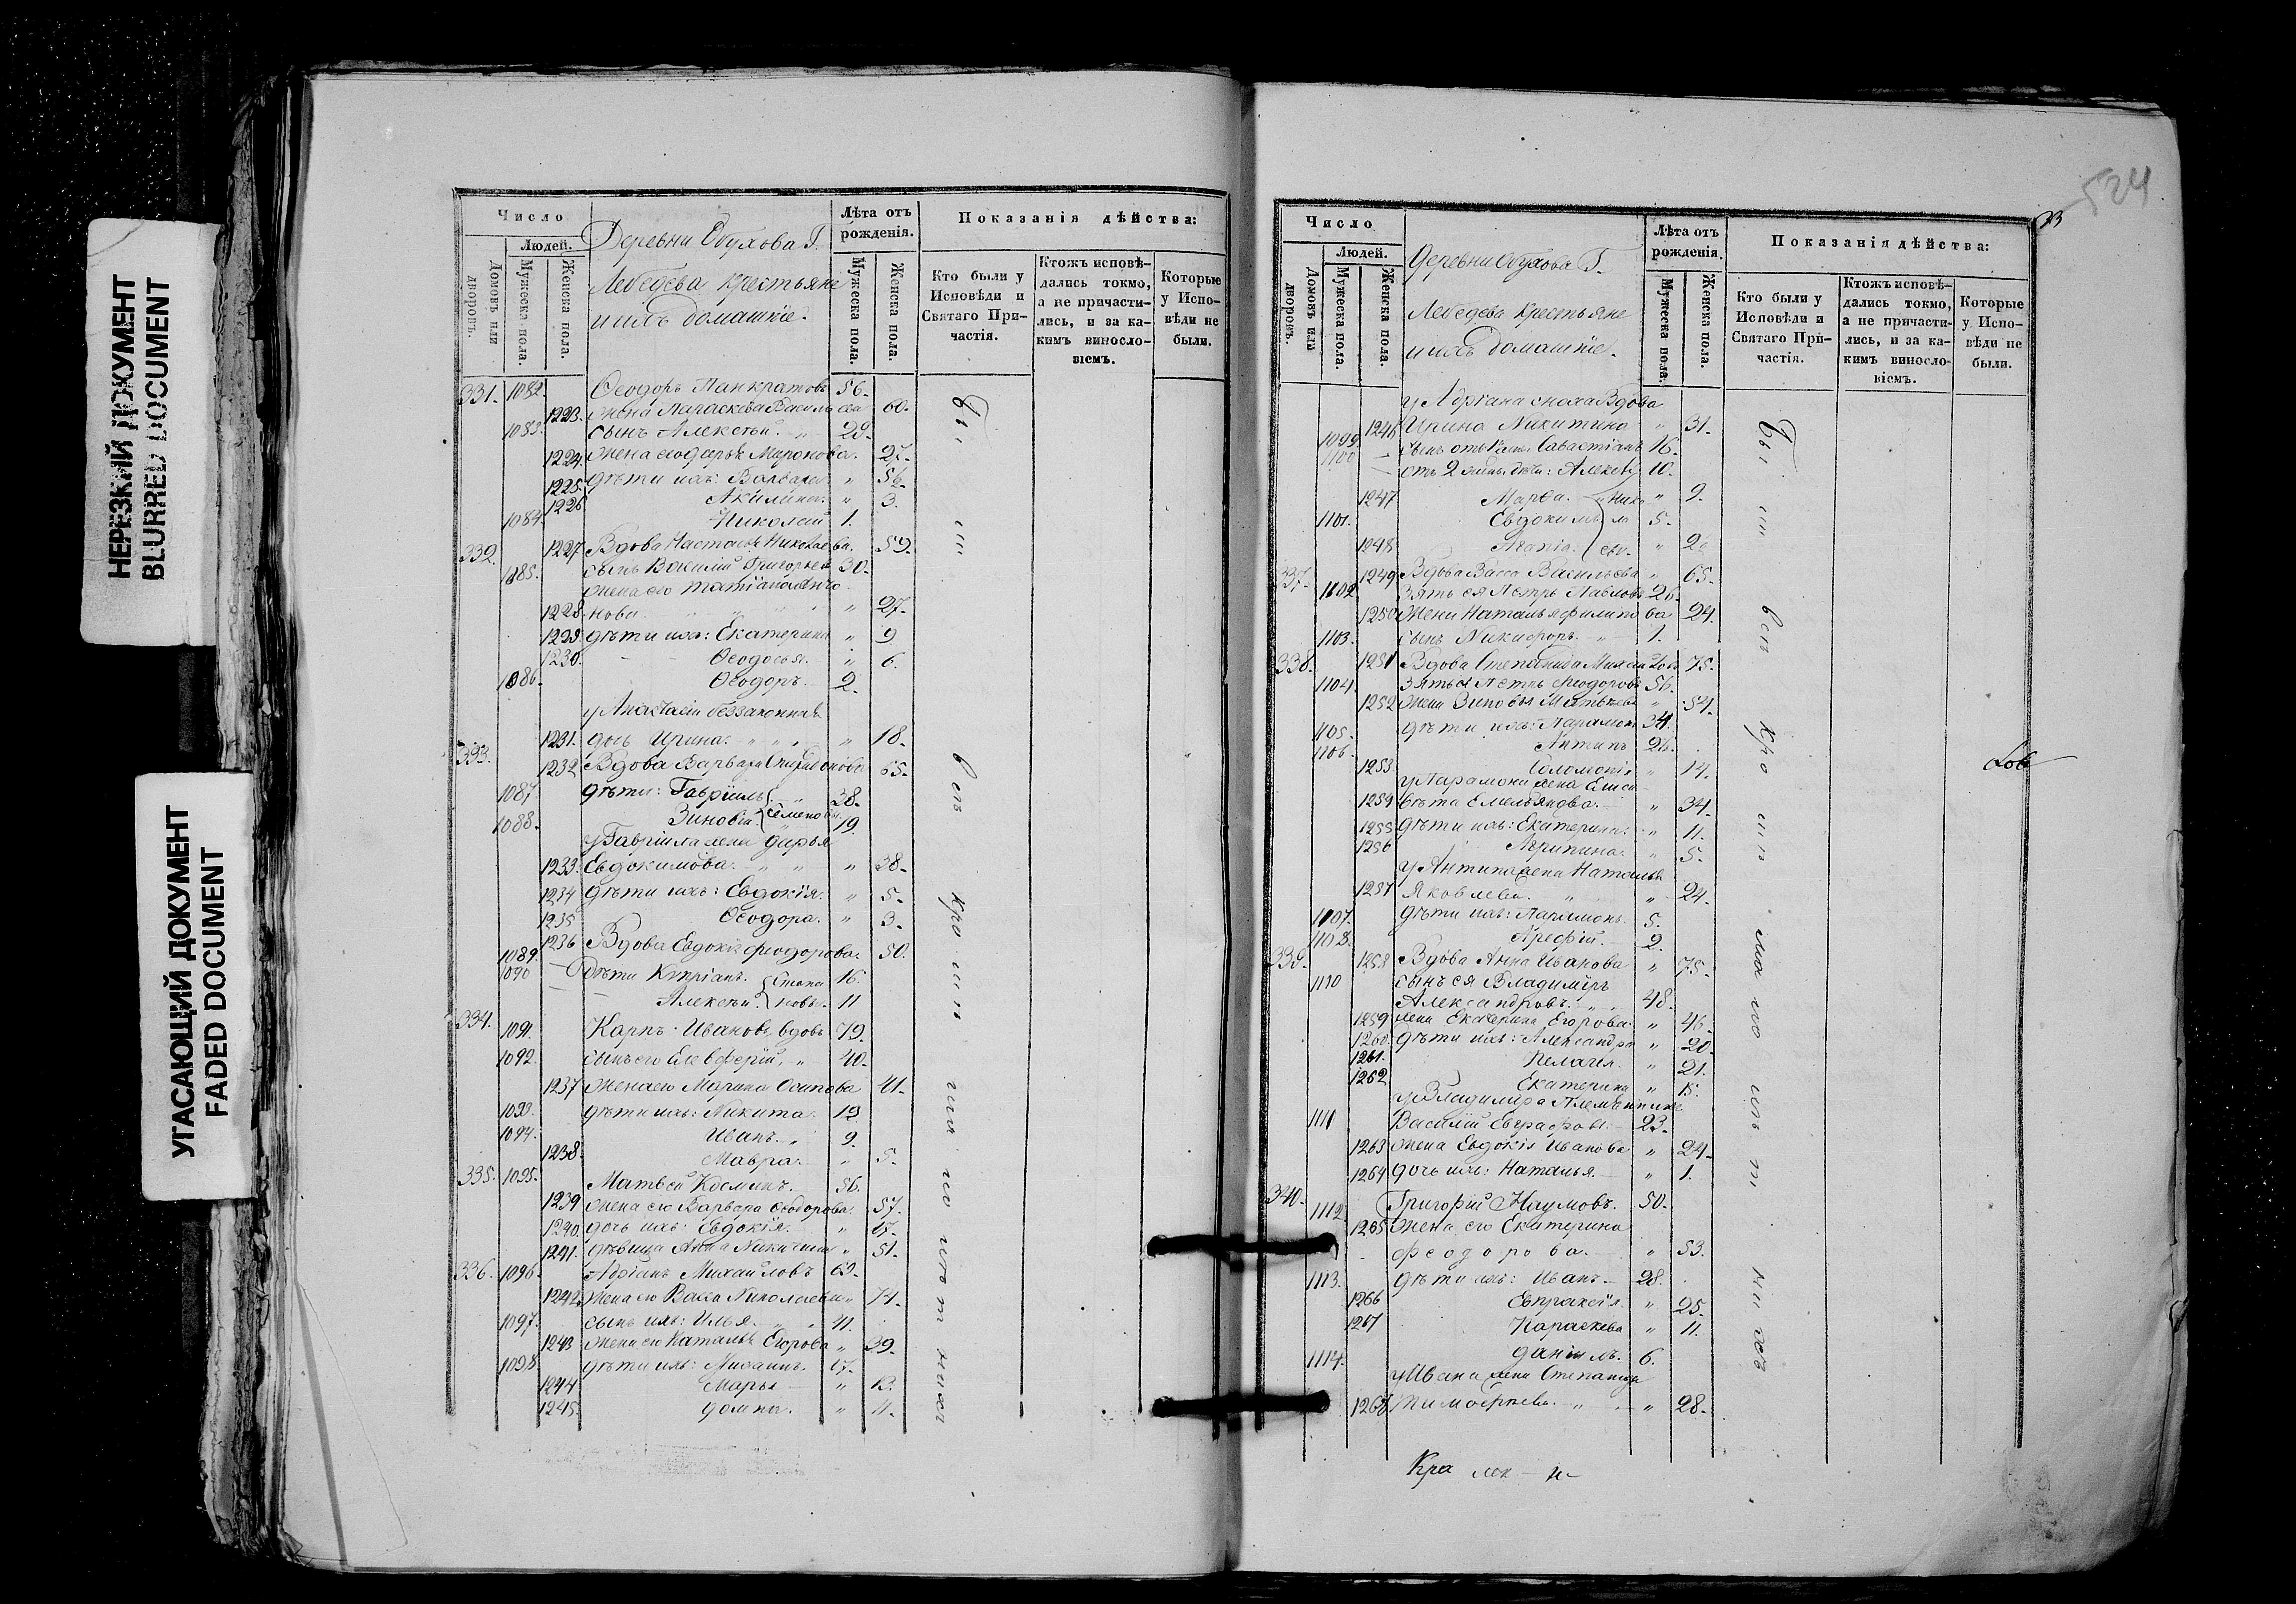 НЕРЕЗКИЙ ДОКУМЕНТ
BLURRED DOCUMENT
УГАСАЮЩИЙ ДОКУМЕНТ
FADED DOCUMENT
Число
Людей.
Домовъ или дворовъ.
Мужеска пола.
Женска пола.
Деревни Обухова Г.
Лебедева крестьяне
и ихъ домашніе.
Лѣта отъ рожденія.
Мужеска пола.
Женска пола.
Показанія дѣйства:
Кто были у Исповѣди и Святаго Причастія.
Ктожъ исповѣдались токмо, а не причастились, и за какимъ винословіемъ.
Которые у Исповѣди не были.
331. 1082. Ѳеодоръ Панкратовъ 56.
1223. жена Параскева Василь ева 60.
1083. сынъ Алексѣй " 29.
1224. жена Миронова. 27.
1225. дѣти ихъ: Варвара "
1226 Акилина " 3.
1084. Николай 1.
332. 1227 Вдова Настасья Николаева. 59.
1085. сынъ Василій Григорьевъ 30.
жена его Татіана
1228. нова " 27.
1229. дѣти ихъ: Екатерина " 9
1230. Ѳеодосья " 6.
1086. Ѳеодоръ 2.
у Анастасіи беззаконная
1231. дочь Ирина. " 18.
333. 1232 Вдова Варвара 65.
1087 дѣти: Гавріилъ 38.
1088. Зиновій Семенов 19
у Гавріила жена Дарья
1233. Евдокимова. " 38.
1234 дѣти ихъ: Евдокія. " 5.
1235 Ѳеодора. " 3.
1236 Вдова Евдокія Феодорова. 50.
1089. 1090 Дѣти Кипріанъ. 16.
Алексѣй 11
334. 1091. Карпъ Ивановъ вдовъ 79.
1092. сынъ его Елевферій " 40.
1237 жена его Марина Осипова 41.
1093. дѣти ихъ: Никита 13
1094. Иванъ " 9.
1238. Мавра. " 5.
335. 1095. Матвей Косминъ. 56.
1239 жена его Варвара Ѳеодорова. 57.
1240. дочь ихъ: Евдокія. " 15.
1241. дѣвица Анна Никитина " 51.
336. 1096. Адріанъ Михайловъ
1242. жена его Васса Николаева " 71.
1097. сынъ ихъ: Илья. " 41.
1243 жена его Наталья Егорова " 39.
1098 дѣти ихъ: Михаилъ. 17.
1244 Марья "
1245. Домна. "
524
Число
Людей.
Домовъ или дворовъ.
Мужеска пола.
Женска пола.
Деревни Обухова Г.
Лебедева крестьяне
и ихъ домашніе.
Лѣта отъ рожденія.
Мужеска пола.
Женска пола.
Показанія дѣйства:
Кто были у Исповѣди и Святаго Причастія.
Ктожъ исповѣдались токмо, а не причастились, и за какимъ винословіемъ.
Которые у Исповѣди не были.
у Адріана сноха Вдова
1246 Ирина Никитина " 31.
1099 сынъ отъ Савастіанъ 16.
1100 отъ 2 жены дѣти: Алексѣй 10.
1247 Марѳа. " 9.
1101. Евдокимъ 5.
1248 Агапія. "
337. 1249 Вдова Васса Васильева " 65.
1102 Зять ея Петръ Павловъ 26.
1250 Жена Наталья Филипо ва 24.
1103. сынъ Никифоръ. " 1.
338. 1251 Вдова Степанида 75.
1104. Зять ея Петръ Феодоровъ 56.
1252 Жена Зиновья Матвѣева " 54.
1105. дѣти ихъ: Парамонъ 34.
1106. Антипъ 26.
1253 Соломонія " 14.
у Парамона жена Елиса
1254 вѣта Емельянова. " 34.
1255 дѣти ихъ: Екатерина " 11.
1256 Агрипина. " 5.
у Антипа жена Наталья
1257 Яковлева. " 24.
1107. дѣти ихъ: 5.
1108. Арефій. 2.
339. 1258 Вдова Анна Иванова " 75.
1110 сынъ ея Владиміръ
Александровъ. " 48.
1259 жена Екатерина Егорова. " 46.
1260. дѣти ихъ: Александра " 20.
1261. Пелагея. " 21.
1262 Екатерина " 15.
у Владиміра племянникъ
1111 Василій Евграфовъ. 23.
1263 жена Евдокія Иванова " 24.
1264 дочь ихъ: Наталья. " 1.
340. 1112 Григорій Наумовъ. 50.
1265 жена его Екатерина
Феодорова. " 53.
1113. дѣти ихъ: Иванъ. 28.
1266 Евпраксія. " 25.
1267 Параскева " 11.
1114. Даніилъ. 6.
у Ивана жена Степанида
1268 Тимофѣева. " 28.